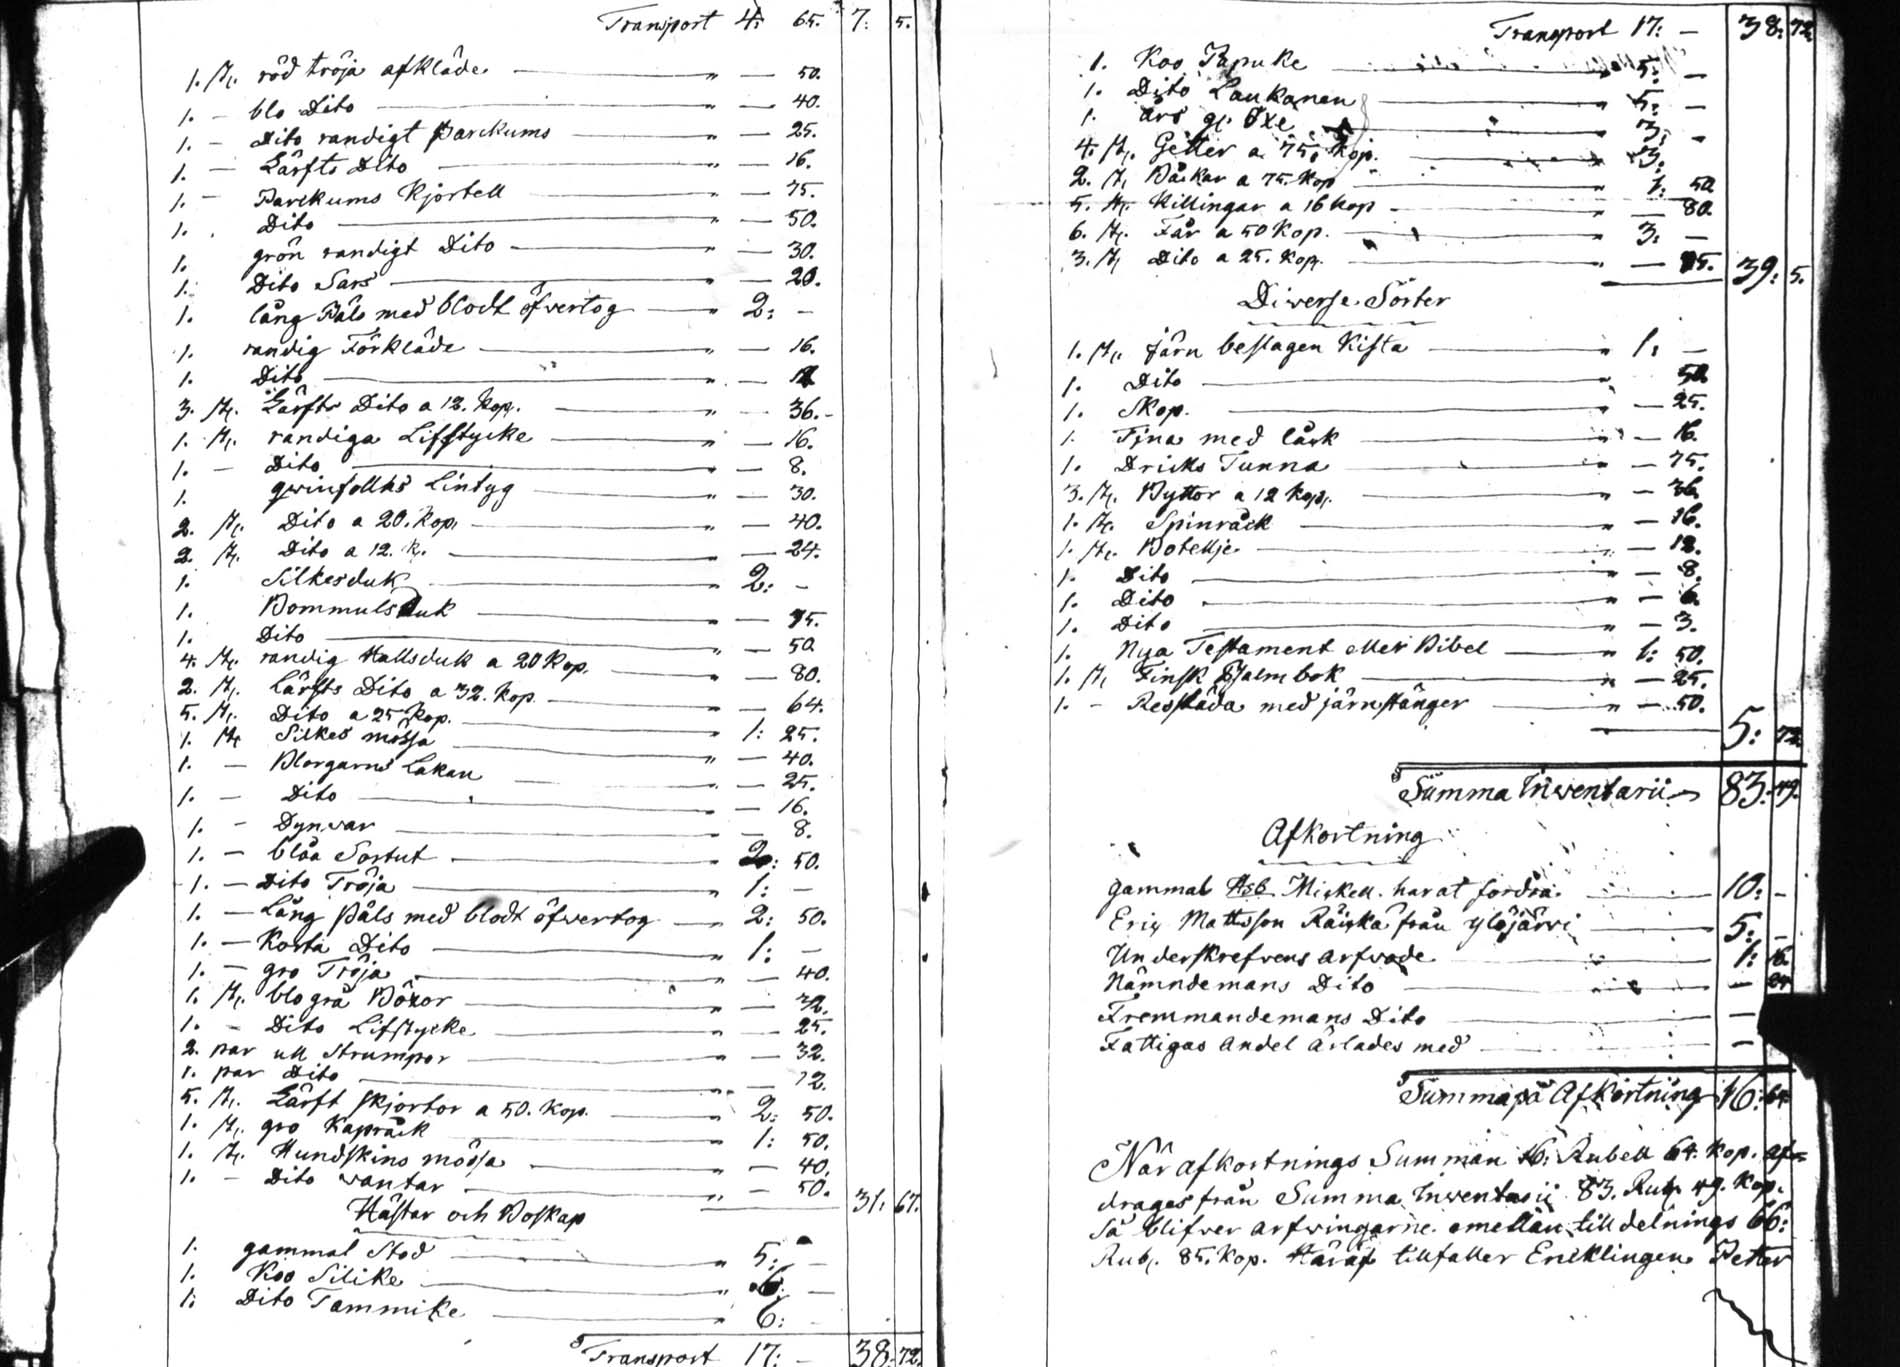 Transport 4: 65. 7: 5.
1. st. röd tröja af kläde " — 50.
1. – blo Dito " — 40.
1. – Dito randigt Parckums " — 25.
1. – Lärfts Dito " — 16.
1. – Parckums Kjortell " — 75.
1. Dito " — 50.
1. grön randigt Dito " — 30.
1. Dito Sars " — 20.
1. lång Päls med blodt öfvertog " 2: –
1. randig Förkläde " — 16.
1. Dito " —
3. st. Lärfts Dito a 12. Kop. " — 36.
1. st. randiga Lifstycke " — 16.
1. – Dito " — 8.
1. qwinfolks Lintyg " — 30.
2. st. Dito a 20. Kop. " — 40.
2. st. Dito a 12. K. " — 24.
1. Silkesduk " 2: –
1. Bommulsduk " — 75.
1. Dito " — 50
4. st. randig Hallsduk a 20 Kop. " — 80.
2. st. Lärfts Dito a 32. Kop. " — 64.
5. st. Dito a 25 Kop. " 1: 25.
1. st. Silkes mössa " — 40.
1. – Blorgarns Lakan " — 25.
1. – Dito " — 16.
1. – Dynwar " — 8.
1. – blåa Sortut " 2: 50.
1. – Dito Tröja " 1: –
1. – Lång päls med blodt öfvertog " 2: 50.
1. – Korta Dito " 1: –
1. – gro Tröja " — 40.
1. st. blogrå Böxor " — 32.
1. – Dito Lifstycke " — 25.
2. par ull Strumpor " — 32.
1. par Dito " — 12.
5. st. Lärft skjortor a 50. Kop. " 2: 50.
1. st. gro Kapråck " 1: 50.
1. st. Hundskins mössa " — 40.
1. – Dito wantar " — 50. 31: 67.
Hästar och Boskap
1. gammal Stod " 5: –
1. Koo Silike " 6: –
1. Dito Tammike " 6: –
Transport 17: – 38: 72.
Transport 17: – 38: 72.
1. Koo Papuke " 5: –
1. Dito Laukanen " 5: –
1. års gl. Oxe " 3: –
4. st. Getter a 75. Kop. " 3:
2. st. Båckar a 75. Kop " 1: 50
5. st. Killingar a 16 Kop " — 80.
6. st. Får a 50 Kop. " 3: –
3. st. Dito a 25. Kop. " — 75. 39: 5.
Diverse Sorter
1. st. järn beslagen Kista " 1: –
1. Dito " 50
1. Skop. " — 25.
1. Tina med låck " — 16.
1. Dricks Tunna " — 75.
3. st. Byttor a 12 Kop. " — 36.
1. st. Spinråck " — 16.
1. st. Botellje " — 12.
1. Dito " — 8.
1. Dito " — 6.
1. Dito " — 3.
1. Nya Testament eller Bibel " 1: 50.
1. st. Finsk Psalmbok " — 25.
1. – Resslåda med järnstänger " — 50.
5: 72.
Summa Inventarii 83: 49.
Afkortning
gammal Hsb. Mickell har at fordra 10: –
Eric Mattsson Räickä från Ylöjärvi 5: –
Underskrefvens arfwode 1: 16.
Nämndemans Dito — 24
Fremmandemans Dito —
Fattigas andel ärlades med —
Summa på Afkortning 16: 64
När afkortnings Summan 16: Rubell 64. Kop. af=
drages från Summa Inventarii 83. Rub. 49. Kop.
så blifver arfwingarne emellan till delnings 66:
Rub. 85. Kop. Häraf tillfaller Encklingen Petter